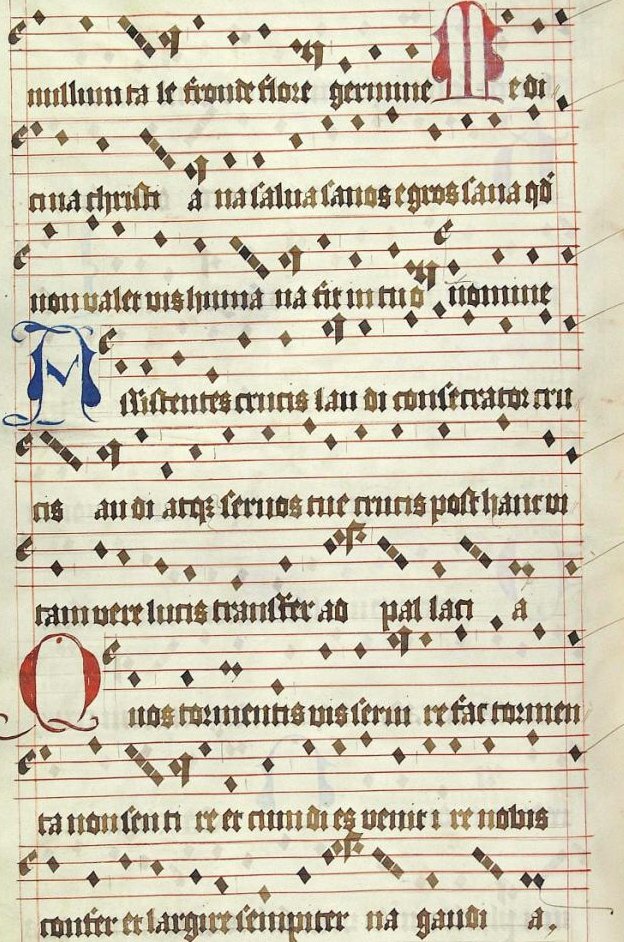 nullum ta le fronde flore germine Medi
cina christi a na salua sanos egros sana qd
non valet vis huma na fit in tuo nomine
Assistentes crucis lau di consecrator cru
cis au di atqz servos tue crucis post hanc vi
tam vere lucis transfer ad pal laci a
Quos tormentis vis servi re fac tormen
ta non sen ti re et cum dies venit i re nobis
confer et largire sempiter na gaudi a.